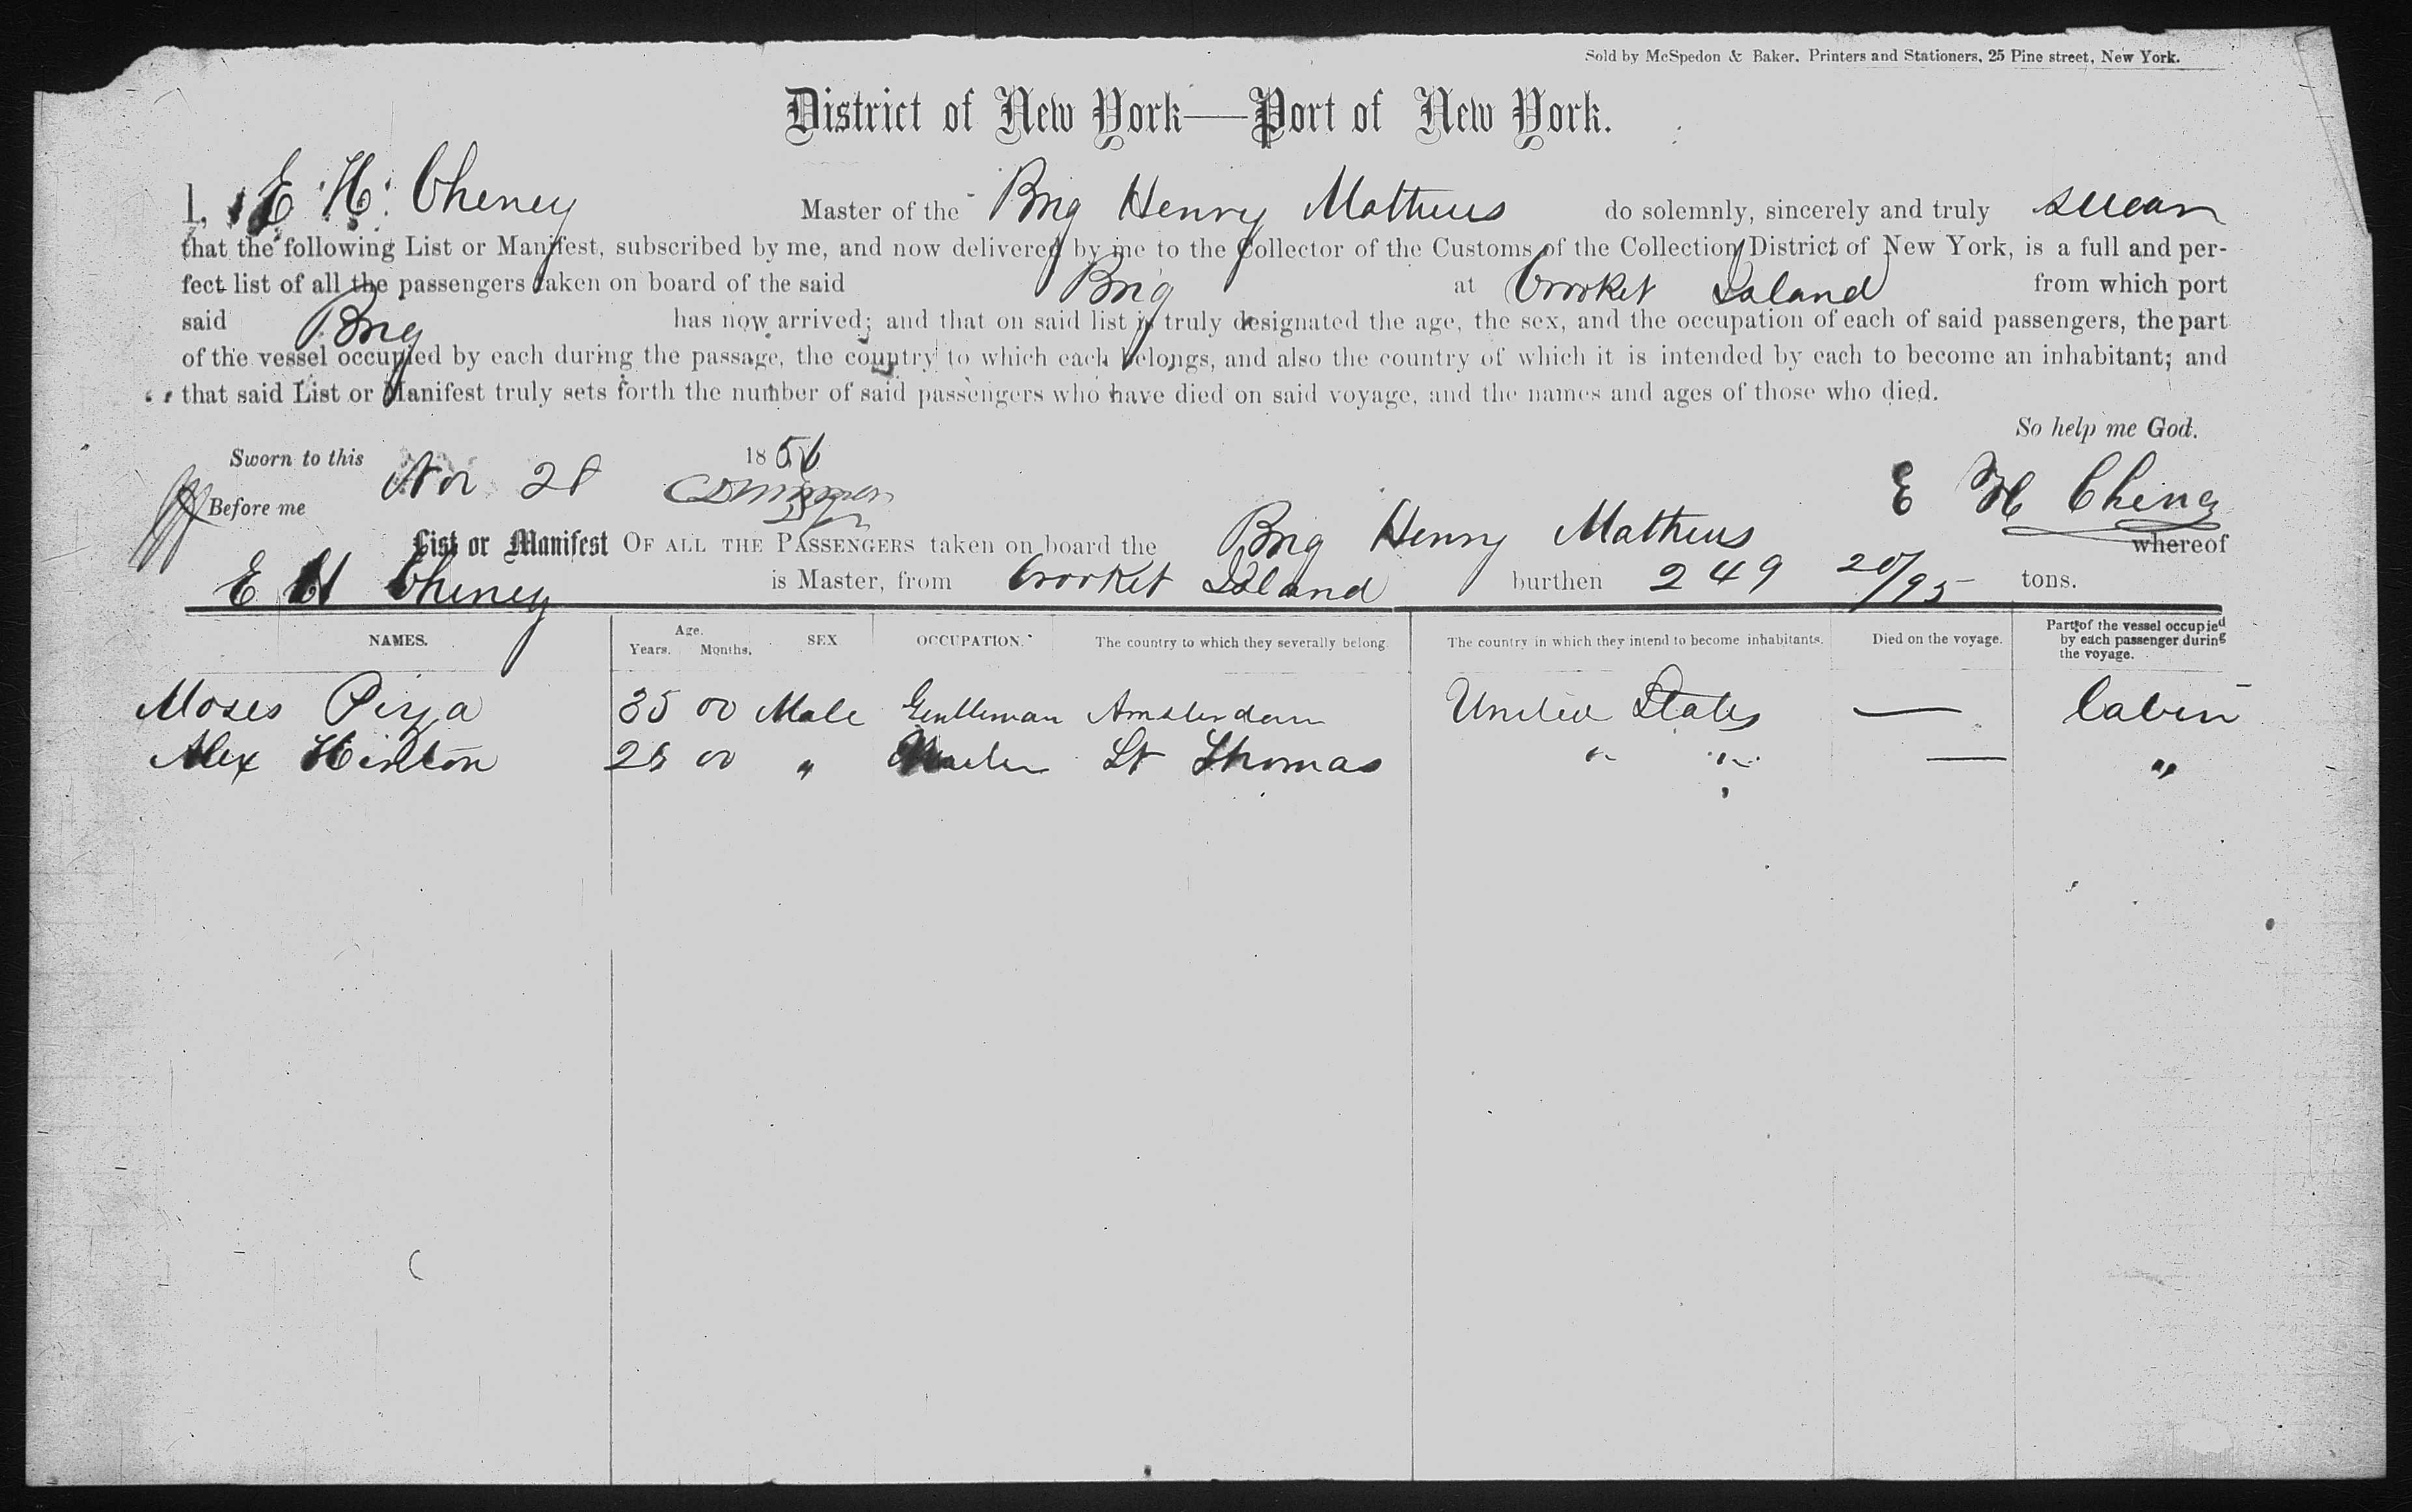 Sold by McSpedon & Baker, Printers and Stationers, 25 Pine street, New York.
District of New York—Port of New York.
I, E H. Cheney Master of the Brig Henry Mathews do solemnly, sincerely and truly swear
that the following List or Manifest, subscribed by me, and now delivered by me to the Collector of the Customs of the Collection District of New York, is a full and per-
fect list of all the passengers taken on board of the said Brig at Crooket Island from which port
said Brig has now arrived; and that on said list is truly designated the age, the sex, and the occupation of each of said passengers, the part
of the vessel occupied by each during the passage, the country to which each belongs, and also the country of which it is intended by each to become an inhabitant; and
that said List or Manifest truly sets forth the number of said passengers who have died on said voyage, and the names and ages of those who died.
So help me God.
Sworn to this Nov 28 1856
Before me
E H Cheney
List or Manifest OF ALL THE PASSENGERS taken on board the Brig Henry Mathews whereof
E H Cheney is Master, from Crooket Island burthen 249 20/95 tons.
NAMES. Age. Years. Months. SEX OCCUPATION. The country to which they severally belong. The country in which they intend to become inhabitants. Died on the voyage. Part of the vessel occupied by each passenger during the voyage.
Moses 35 00 Male Gentleman Amsterdam United States — Cabin
Alex Hinton 25 00 " St Thomas " " — "